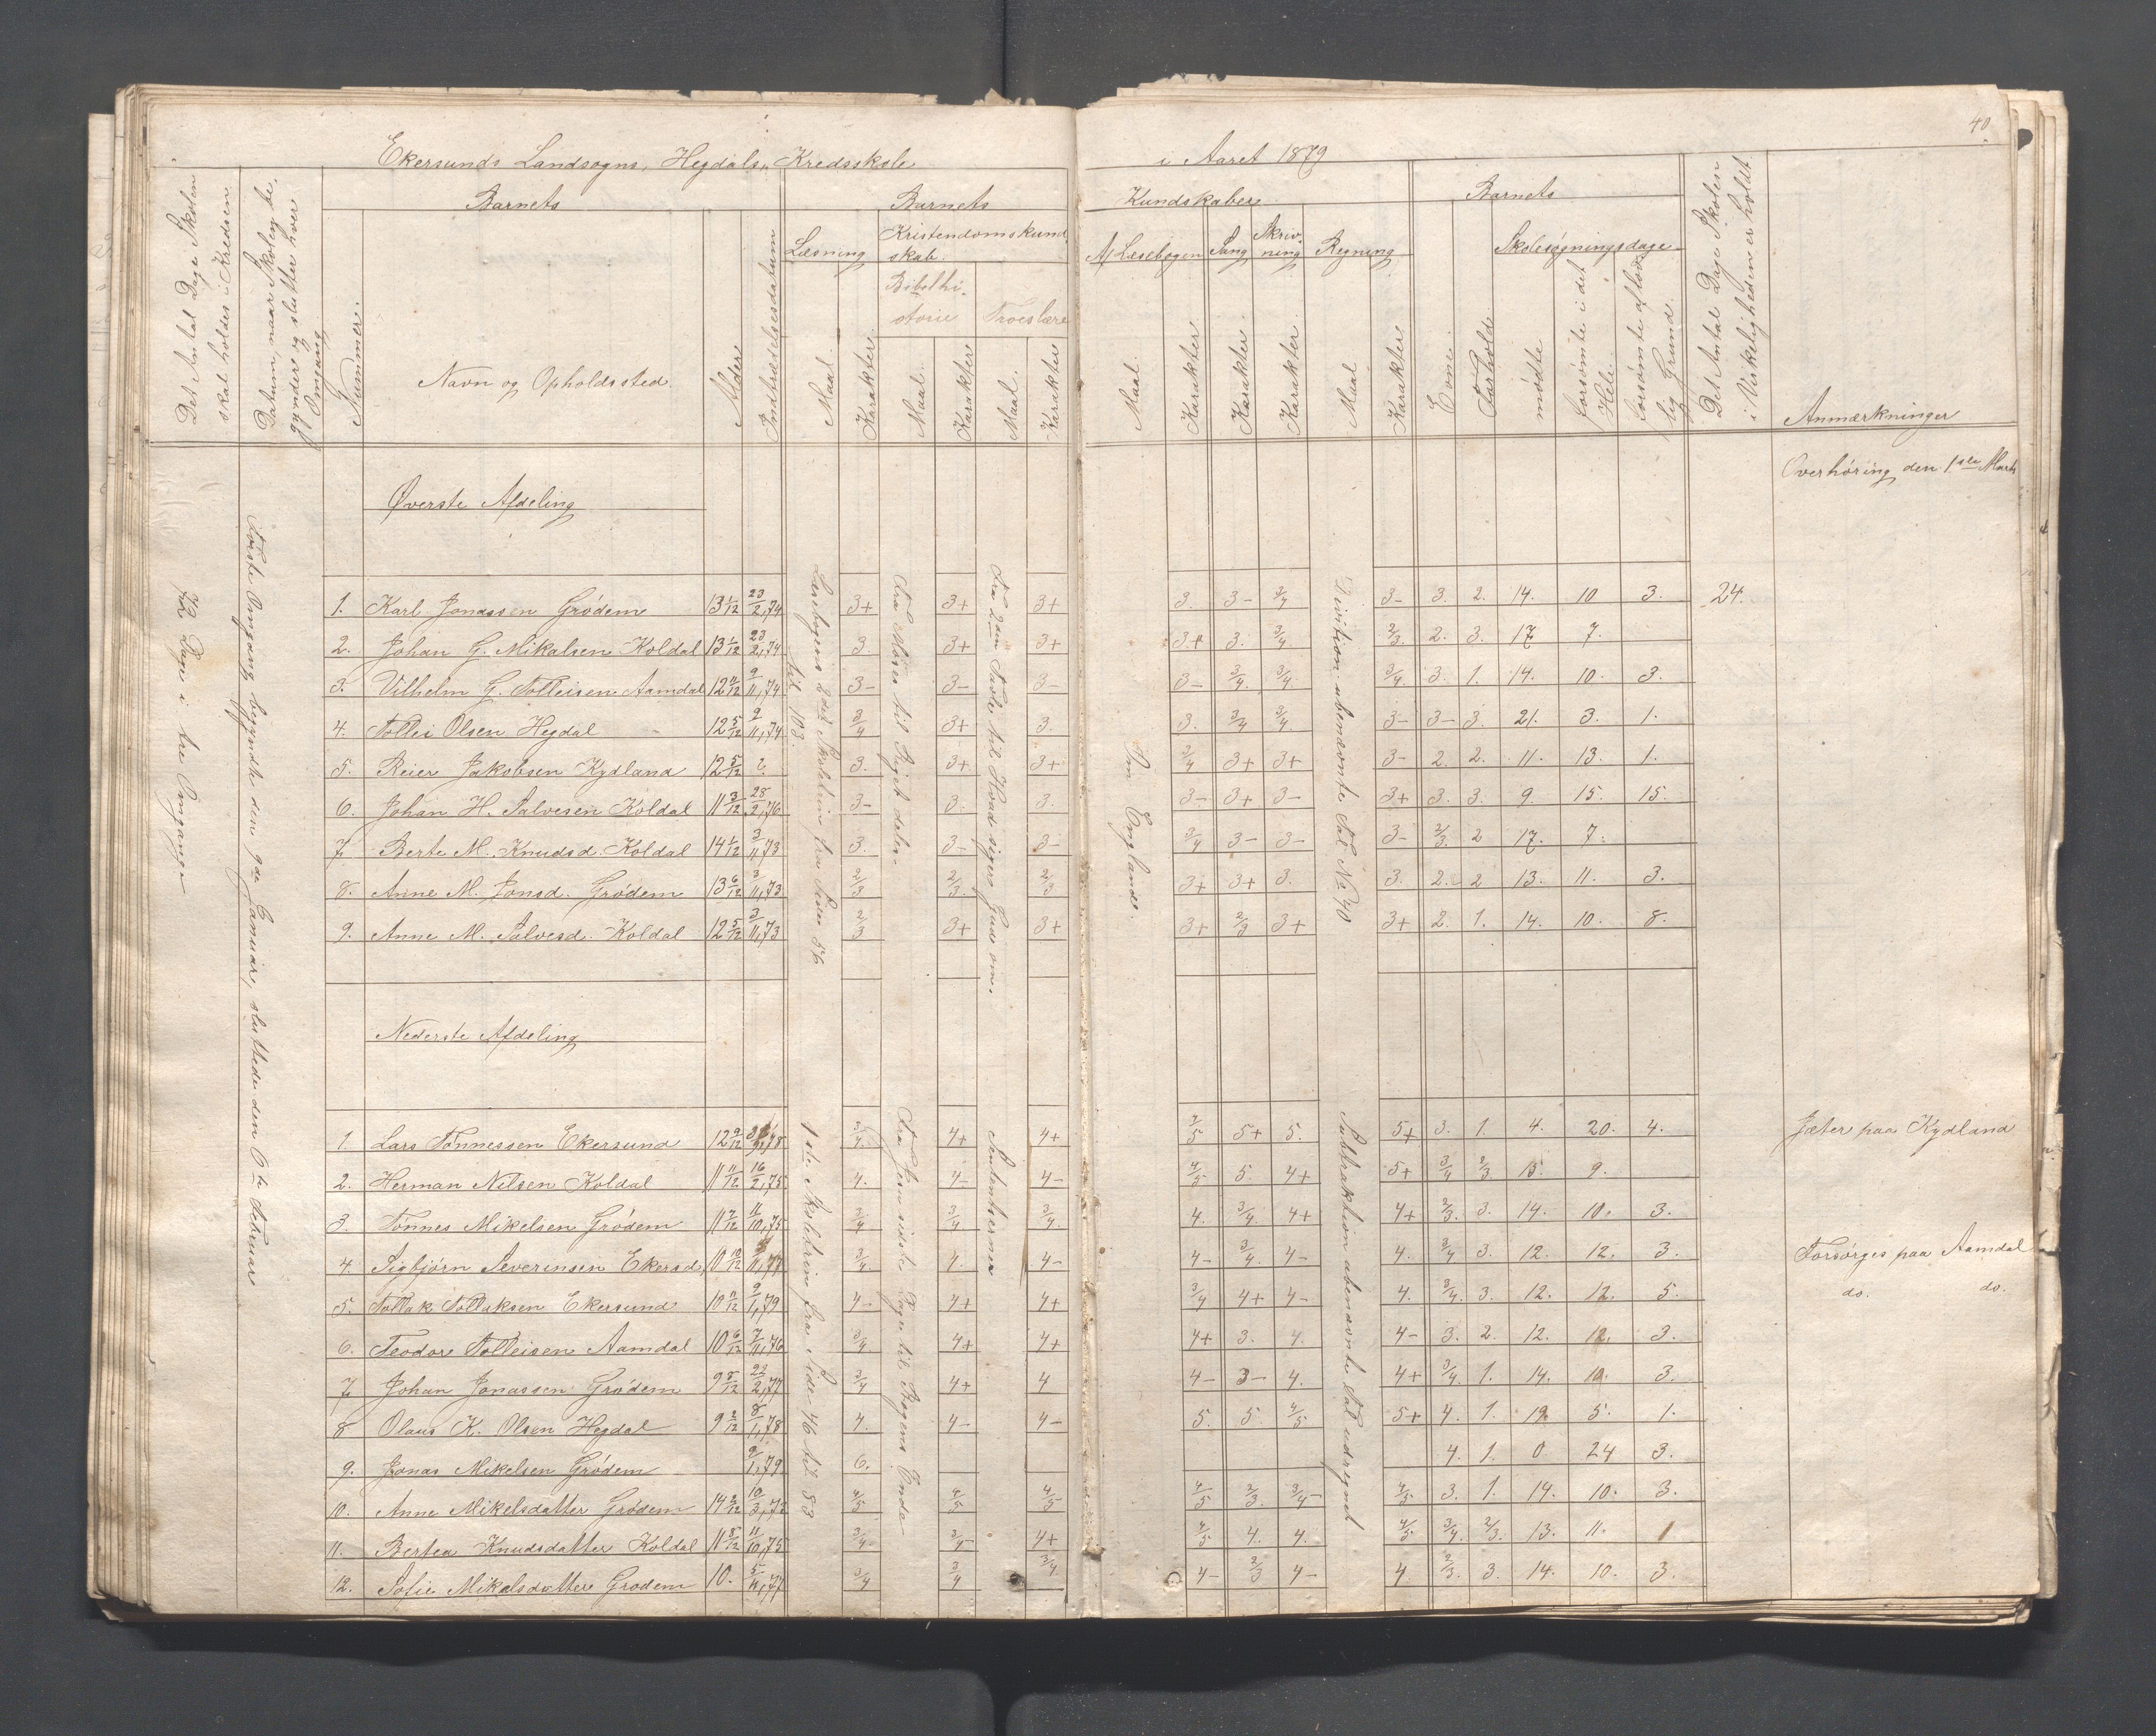 40.
Ekersunds Landsogns, Hegdals Kredsskole
i Aaret 1879
Det Antal Dage Skolen skal holdes i Kredsen
Datum, naar Skolen begynder og slutter hver Omgang
Barnets
Nummer.
Navn og Opholdssted.
Alder
Indtrædelsesdatum
Barnets
Læsning
Maal.
Karakter
Kristendomskundskab.
Bibelhistorie
Maal.
Karakter
Troeslære
Maal.
Karakter
Kundskaber
Af Læsebogen
Maal.
Karakter
Sang
Karakter
Skrivning
Karakter
Regning
Maal
Karakter
Barnets
Evne.
Forhold.
Skolesøgningsdage
mødte
forsømte i det Hele.
forsømte af lovlig Grund.
Det Antal Dage Skolen i Virkeligheden er holdt.
Anmærkninger
Overhøring den 1ste Marts
Øverste Afdeling
72 Dage i tre Omgange
Første Omgang begyndte den 9de Januar, sluttede den 6te Februar
Læsebogens 2det Skoletrin fra Siden 56 til 103.
Fra Moses til Riget deles.
Fra 2den Part til Hvad siger Gud om.
Om England.
Division ubenævnte Tal No 40
1. Karl Jonassen Grødem 13 1/12 23/2,74 3+ 3+ 3+ 3. 3- 3/4 3- 3. 2. 14. 10 3. 24.
2. Johan G. Mikalsen Koldal 13 1/12 23/2,74 3. 3+ 3+ 3+ 3. 3/4 2/3. 2. 3. 17 7.
3. Vilhelm G. Tolleisen Aamdal 12 11/12 9/11,74 3- 3- 3- 3- 3/4. 3/4. 3/4. 3. 1. 14. 10. 3.
4. Tollei Olsen Hegdal 12 5/12 9/11,74 3/4 3+ 3. 3. 3/4 3/4. 3- 3- 3. 21. 3. 1.
5. Reier Jakobsen Kydland 12 5/12 ?. 3. 3+ 3+ 3/4 3+ 3+ 3- 2. 2. 11. 13. 1.
6. Johan H. Salvesen Koldal 11 3/12 28/2,76 3- 3. 3. 3- 3+ 3- 3+ 3. 3. 9. 15. 15.
7. Berte M. Knudsd. Koldal 14 1/12 3/11,73 3. 3- 3- 3/4 3- 3- 3- 2/3. 2 17. 7.
8. Anne M. Jonsd. Grødem 13 6/12 3/11,73 2/3 2/3. 2/3 3+ 3+ 3. 3. 2. 2 13. 11. 3.
9. Anne M. Salvesd. Koldal 12 5/12 3/11,73 2/3 3+ 3+ 3+ 2/3 3+ 3+ 2. 1. 14. 10. 8.
Nederste Afdeling
1ste Skoletrin fra Side 46 til 83
Fra Jesu sidste Dage til Bogens Ende
Sentenserne
Subtraktion ubenævnte Tal udregnet
1. Lars Tønnessen Ekersund 12 9/12 3/4. 4+ 4+ 4/5 5+ 5. 5+ 3. 1. 4. 20. 4. Jæter paa Kydland
2. Herman Nilsen Koldal 11 11/12 16/2,75 4. 4- 4- 4/5 5. 4+ 5+ 3/4 2/3 15. 9.
3. Tønnes Mikelsen Grødem 11 7/12 11/10,75 3/4 3/4 3/4. 4. 3/4. 4+ 4+ 2/3. 3. 14. 10. 3.
4. Sigbjørn Severinsen Ekersd. 10 10/12 3/4. 4. 4- 4- 3/4. 4- 4. 3/4 3. 12. 12. 3. Forsørges paa Aamdal
5. Tollak Tollaksen Ekersund 10 11/12 9/1,79 4- 4+ 4+ 3/4 4+ 4- 4. 3/4. 3. 12. 12. 5. do. do.
6. Teodor Tolleisen Aamdal 10 6/12 7/11,76 3/4. 4+ 4+ 4+ 3. 4. 4- 3. 2. 12. 12. 3.
7. Johan Jonassen Grødem 9 8/12 23/2,77 3/4 4+ 4 4- 3- 4. 4+ 3/4. 1. 14. 10. 3.
8 Olaus K. Olsen Hegdal 9 2/12 8/1,78 4. 4- 4- 5. 5. 4/5 5+ 4. 1. 19. 5. 1.
9. Jonas Mikelsen Grødem 9/1,79 6. 4. 1. 0. 24 3.
10. Anne Mikelsdatter Grødem 14 2/12 10/3,72 4/5 4/5 4/5 4/5 2/3. 3/4- 4/5 3. 1. 14. 10. 3.
11. Bertea Knudsdatter Koldal 11 8/12 11/10,75 3/4. 3/4- 4+ 4/5 4. 4. 4/5 3/4. 2/3. 13. 11. 1
12. Sofie Mikalsdatter Grødem 10. 5/11,77 3/4 3/4 3/4 4- 2/3 4- 4. 2/3. 3. 14. 10. 3.